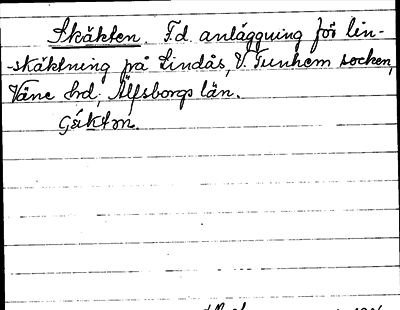 Skäkten. F.d. anläggning för lin-
-skäktning på Lindås, V. Tunhem socken,
Väne hrd, Älfsborgs län.